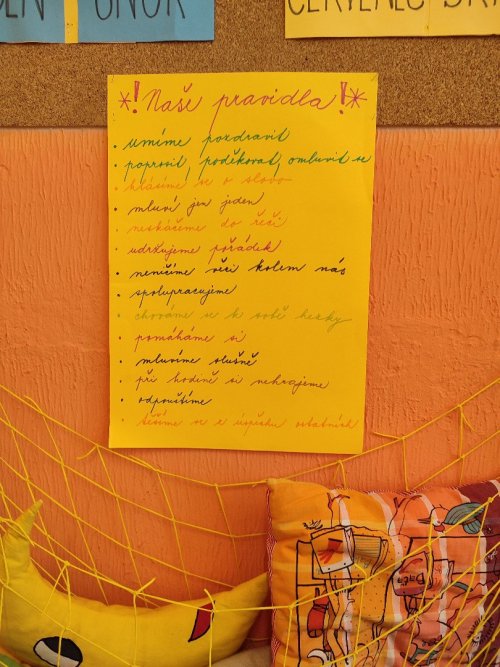 ÚNOR
ČERVENEC
*! Naše pravidla !*
• umíme pozdravit
• poprosit, poděkovat, omluvit se
• hlásíme se o slovo
• mluví jen jeden
• neskáčeme do řeči
• udržujeme pořádek
• neničíme věci kolem nás
• spolupracujeme
• chováme se k sobě hezky
• pomáháme si
• mluvíme slušně
• při hodině si nehrajeme
• odpouštíme
• těšíme se z úspěchu ostatních